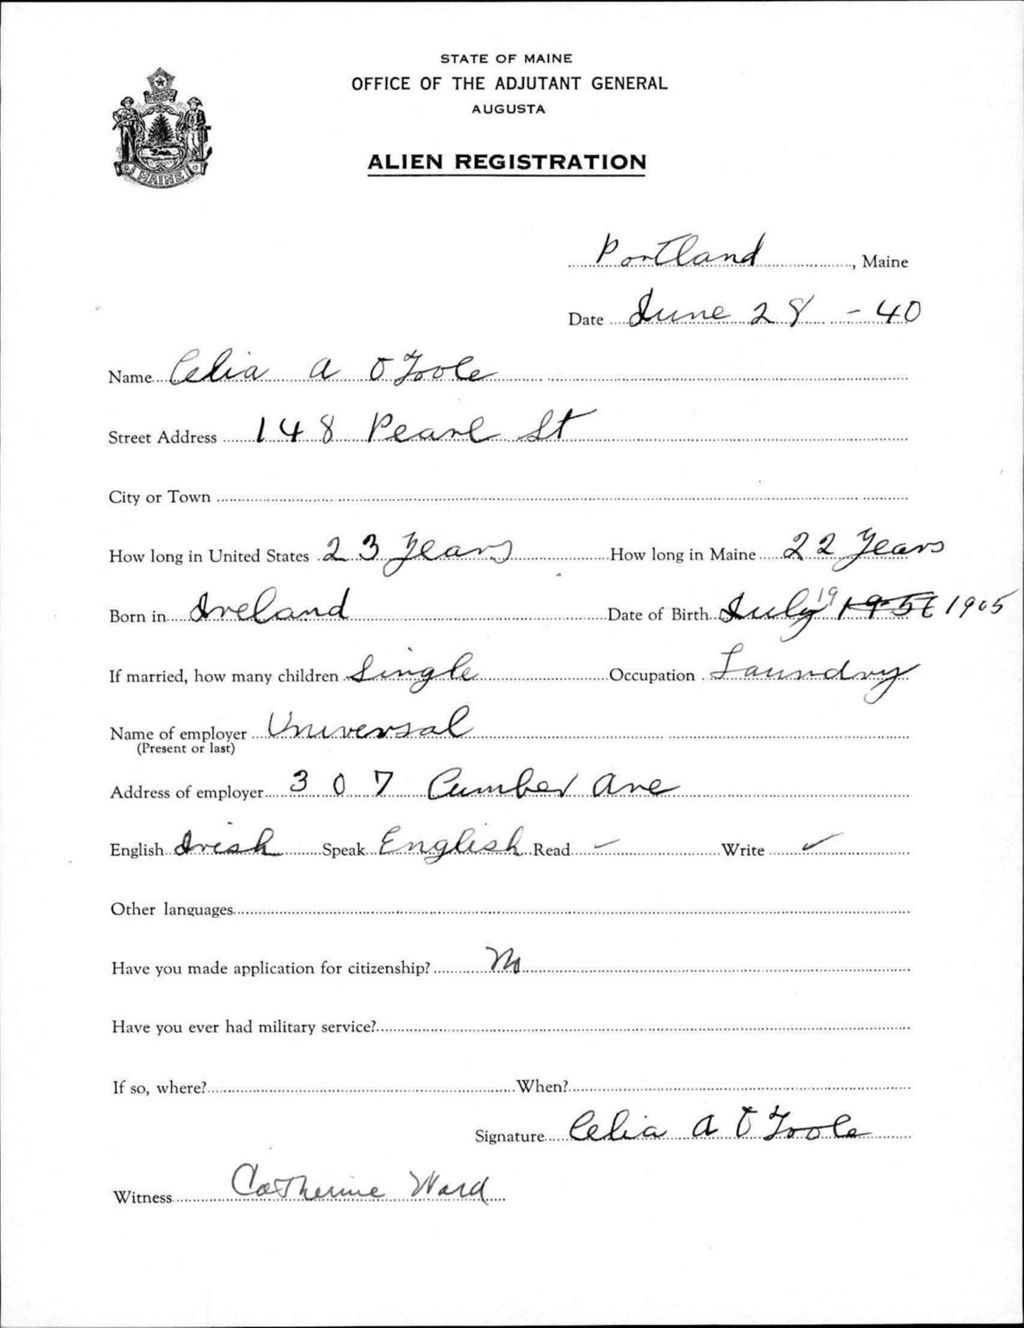 STATE OF MAINE
OFFICE OF THE ADJUTANT GENERAL
AUGUSTA
ALIEN REGISTRATION
MAINE
Portland, Maine
Date June 28 - 40
Name Celia A O Toole
Street Address 148 Pearl St
City or Town
How long in United States 23 Years How long in Maine 22 Years
Born in Ireland Date of Birth July 19 1905
If married, how many children Single Occupation Laundry
Name of employer Universal
(Present or last)
Address of employer 307 Cumber Ave
English Irish Speak English Read - Write ✓
Other languages
Have you made application for citizenship? No
Have you ever had military service?
If so, where? When?
Signature Celia A O Toole
Witness Catherine Ward